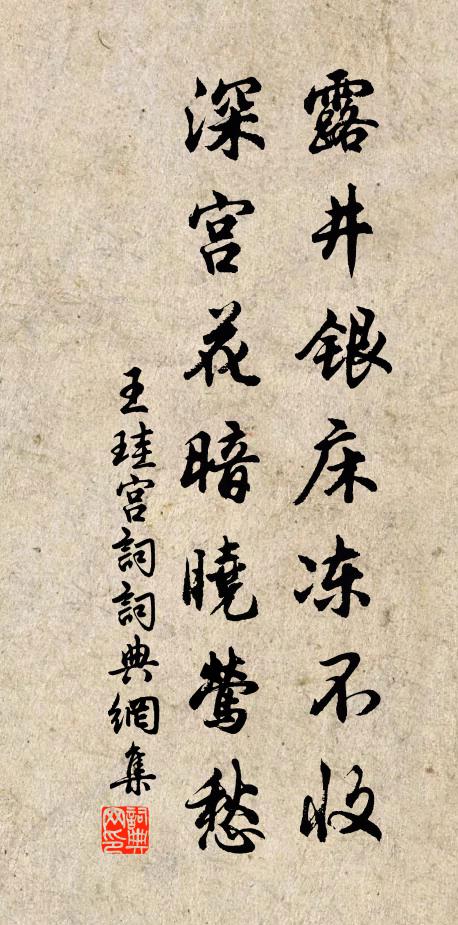 露井银床冻不收
深宫花暗晓莺愁
王珪宫詞詞典網集
詞典网印